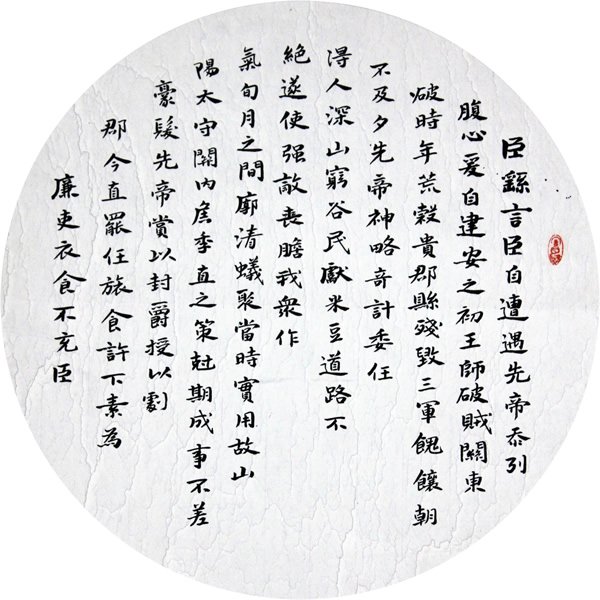 臣繇言臣自遭遇先帝忝列
腹心爰自建安之初王師破賊關東
破時年荒穀貴郡縣殘毀三軍餽饟朝
不及夕先帝神略奇計委任
得人深山窮谷民獻米豆道路不
絕遂使强敵喪膽我衆作
氣旬月之間廓清蟻聚當時實用故山
陽太守關内侯季直之策尅期成事不差
豪髮先帝賞以封爵授以劇
郡今直罷任旅食許下素為
廉吏衣食不充臣